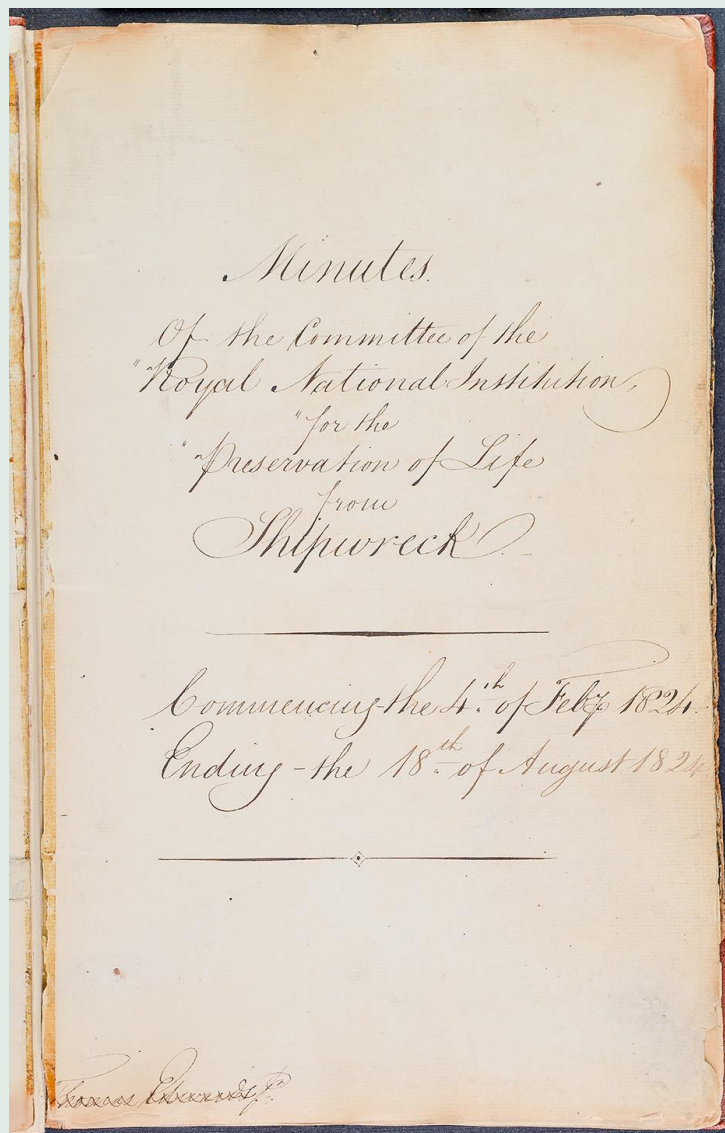 Minutes.
Of the Committee of the
"Royal National Institution,
"for the
"Preservation of Life
from
Shipwreck.
Commencing the 4.th of Feby 1824.
Ending - the 18th of August 1824
Thomas Edwards Jr.